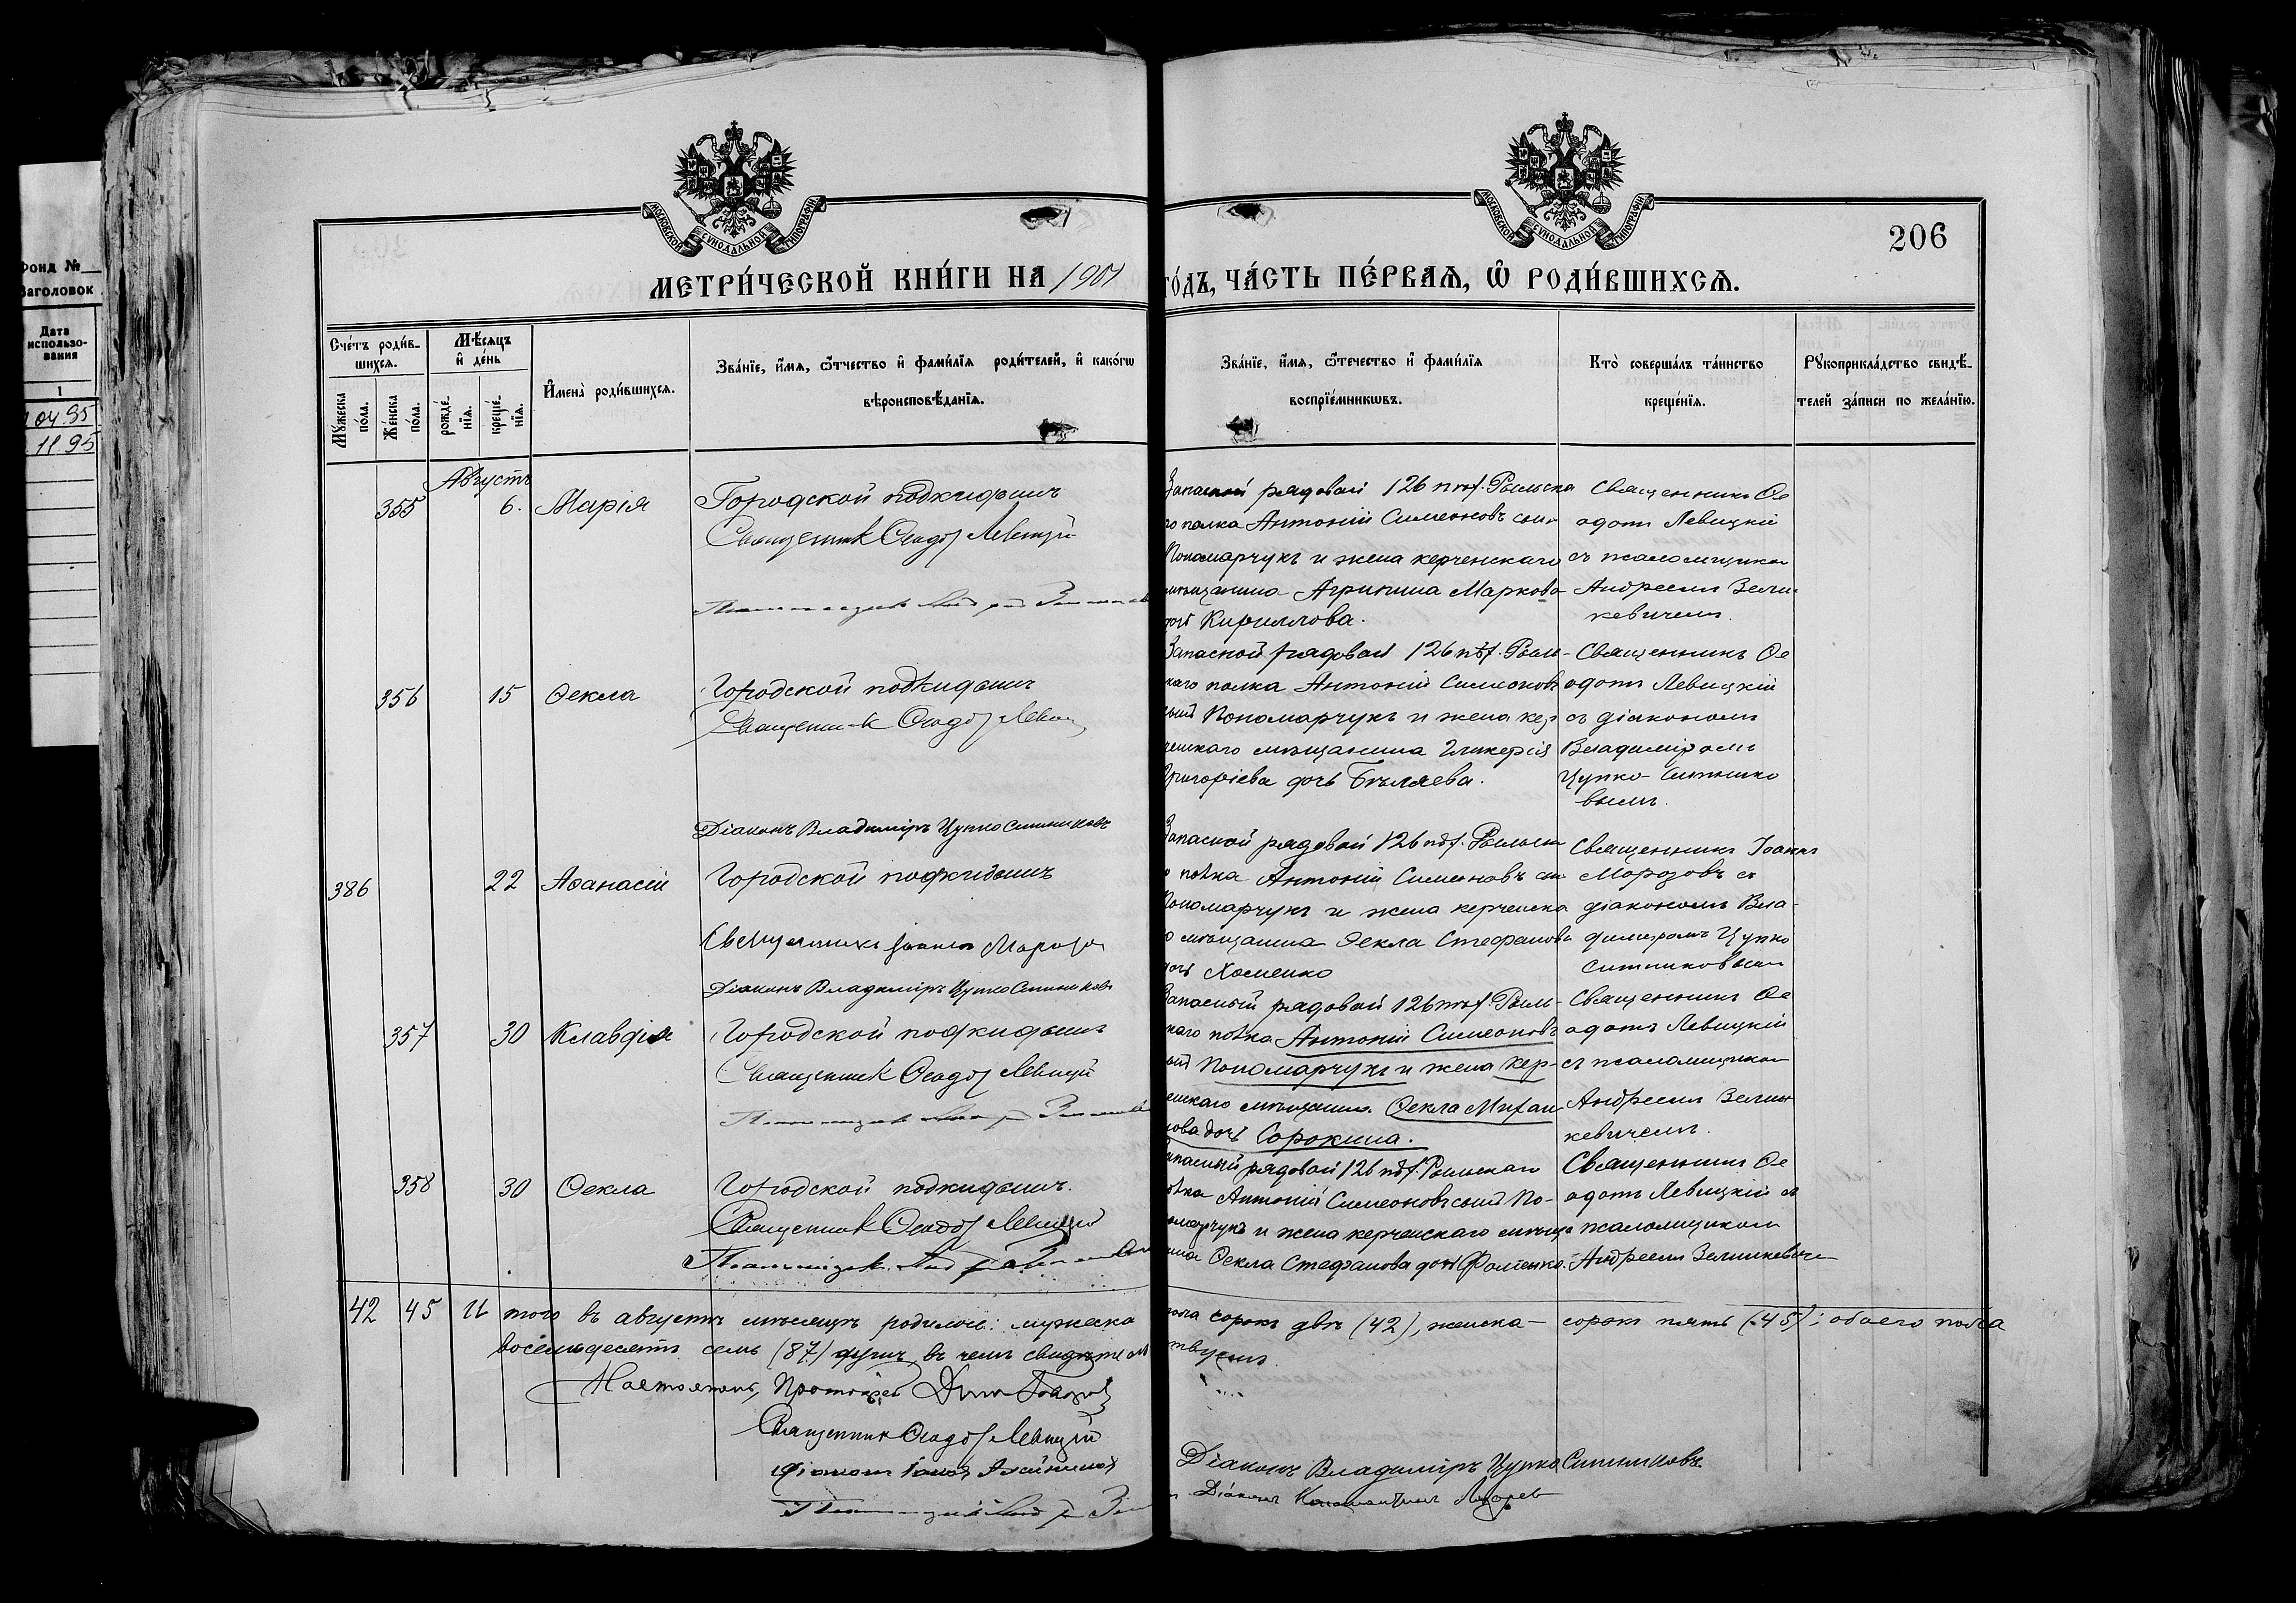 Фонд №
Заголовок
Дата
использо-
вания
1
04.95
11.95
МОСКОВСКОЙ СУНОДАЛЬНОЙ ТИПОГРАФІИ
МОСКОВСКОЙ СУНОДАЛЬНОЙ ТИПОГРАФІИ
206
МЕТРИ́ЧЕСКОЙ КНИ́ГИ НА 1901 ГО́ДЪ, ЧА́СТЬ ПЕ́РВАѦ, Ѡ҆ РОДИ́ВШИХСѦ.
Сче́тъ роди́в-
шихсѧ.
Мꙋ́жеска по́ла.
Же́нска по́ла.
Мѣ́сѧцъ
и҆ де́нь
рожде́-
нїѧ.
креще́-
нїѧ.
И҆мена̀ роди́вшихсѧ.
Зва́нїе, и҆́мѧ, ѻ҆́тчество и҆ фами́лїѧ роди́телей, и҆ како́гѡ
вѣроисповѣ́данїѧ.
Зва́нїе, и҆́мѧ, ѻ҆те́чество и҆ фами́лїѧ
воспрїе́мникѡвъ.
Кто̀ соверша́лъ та́инство
креще́нїѧ.
Рꙋкоприкла́дство свидѣ́-
телей за́писи по жела́нїю.
Августъ
355 6. Марія
Городской подкидышъ
Священникъ Ѳеодот Левицкій
Запасной рядовой 126 пѣх. Рыльска
го полка Антоній Симеоновъ сын
Пономарчукъ и жена керченскаго
мѣщанина Агрипина Маркова
дочь Кириллова.
Священникъ Ѳе
одотъ Левицкій
съ псаломщиком
Андреемъ Зелин
кевичемъ.
356 15 Ѳекла
Городской подкидышъ
Священник Ѳеодот Левиц
Діаконъ Владиміръ Цупко Ситниковъ
Запасной рядовой 126 пѣх. Рыль-
скаго полка Антоній Симеоновъ
сынъ Пономарчукъ и жена кер
ченскаго мѣщанина Гликерія
Григоріева дочь Бѣляева.
Священникъ Ѳе
одотъ Левицкій
съ діакономъ
Владиміромъ
Цупко-Ситнико
вымъ.
386 22 Аѳанасій
Городской подкидышъ
Священникъ Іоаннъ Морозов
Діаконъ Владиміръ Цупко Ситниковъ
Запасной рядовой 126 пѣх. Рыльска
о полка Антоній Симеоновъ сын
Пономарчукъ и жена керченска
о мѣщанина Ѳекла Стефанова
дочь Хоменко
Священникъ Іоаннъ
Морозовъ съ
діакономъ Вла-
димиромъ Цупко
Ситниковым
357 30 Клавдія
Городской подкидышъ
Священник Ѳеодот Левицкій
Запасный рядовой 126 пѣх. Рыль-
скаго полка Антоній Симеоновъ
сынъ Пономарчукъ и жена Кер-
ченскаго мѣщанина Ѳекла Михаи
лова дочь Сорокина.
Священникъ Ѳе
одотъ Левицкій
съ псаломщиком
Андреемъ Зелин
кевичемъ.
358 30 Ѳекла
Городской подкидышъ.
Священник Ѳеодот Левицкій
Запасный рядовой 126 пѣх. Рыльскаго
полка Антоній Симеоновъ сынъ По-
номарчукъ и жена керченскаго мѣща
нина Ѳекла Стефанова дочь Фоменко.
Священникъ Ѳе
одотъ Левицкій съ
псаломщиком
Андреемъ Зелинкевиче
42 45 Итого въ августѣ мѣсяцѣ родилось: мужеска пола сорокъ двѣ (42), женска- сорокъ пять (45); обоего пола
восемьдесятъ семь (87) душъ, въ чемъ свидѣтельствуемъ.
Настоятель, Протоіерей
Священник Ѳеодот Левицкій
Діаконъ
Діаконъ Владиміръ Цупко Ситниковъ.
Діаконъ Константинъ